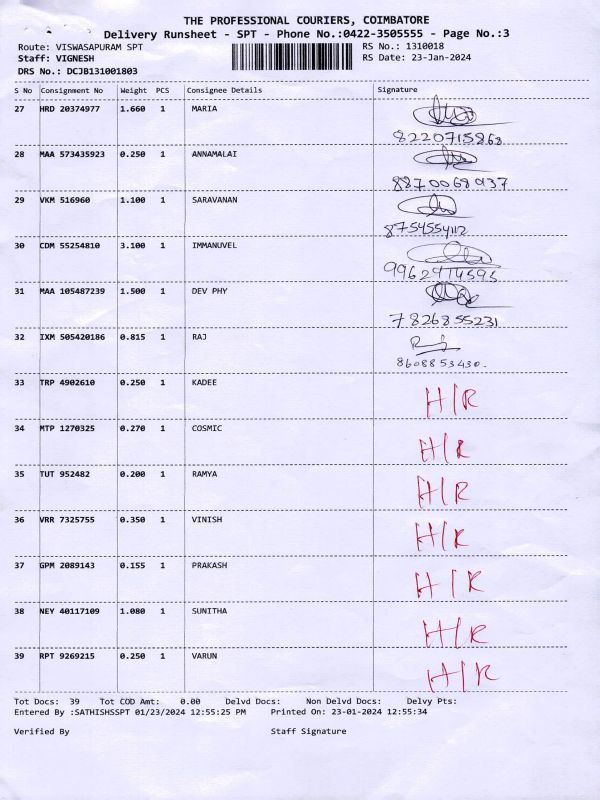 THE PROFESSIONAL COURIERS, COIMBATORE
Delivery Runsheet - SPT - Phone No.:0422-3505555 - Page No.:3
Route: VISWASAPURAM SPT RS No.: 1310018
Staff: VIGNESH RS Date: 23-Jan-2024
DRS No.: DCJB131001803
S No Consignment No Weight PCS Consignee Details Signature
27 HRD 20374977 1.660 1 MARIA
8220715868
28 MAA 573435923 0.250 1 ANNAMALAI
8870068937
29 VKM 516960 1.100 1 SARAVANAN
8754554112
30 CDM 55254810 3.100 1 IMMANUVEL
31 MAA 105487239 1.500 1 DEV PHY
7826855231
32 IXM 505420186 0.815 1 RAJ
8608853430.
33 TRP 4902610 0.250 1 KADEE H/R
34 MTP 1270325 0.270 1 COSMIC H/R
35 TUT 952482 0.200 1 RAMYA H/R
36 VRR 7325755 0.350 1 VINISH H/R
37 GPM 2089143 0.155 1 PRAKASH H/R
38 NEY 40117109 1.080 1 SUNITHA H/R
39 RPT 9269215 0.250 1 VARUN H/R
Tot Docs: 39 Tot COD Amt: 0.00 Delvd Docs: Non Delvd Docs: Delvy Pts:
Entered By :SATHISHSSPT 01/23/2024 12:55:25 PM Printed On: 23-01-2024 12:55:34
Verified By Staff Signature